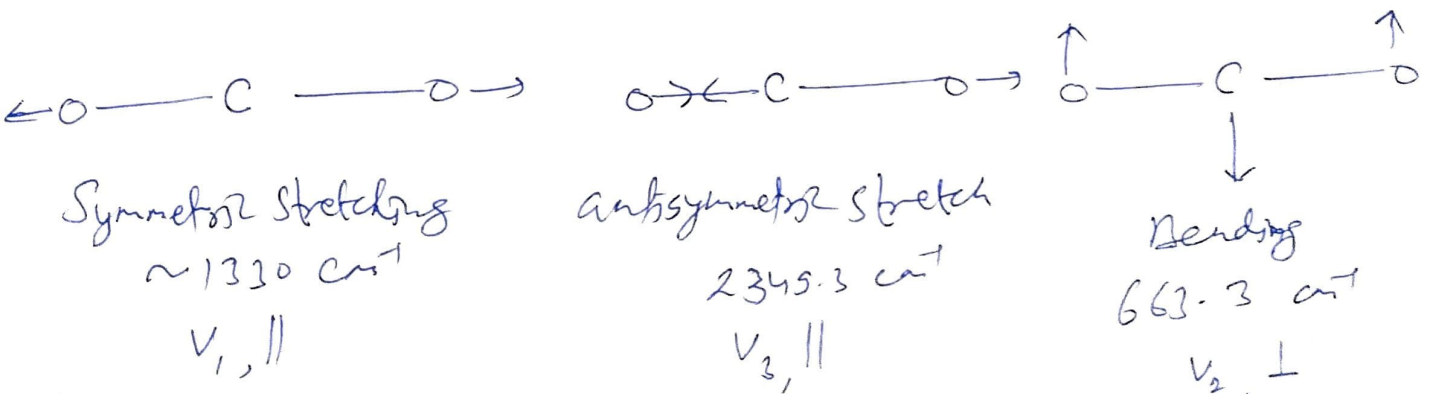 ←O — C — O→
O→←C — O→
O — C — O
Symmetric Stretching
~1330 cm⁻¹
ν₁, ||
antisymmetric stretch
2349.3 cm⁻¹
ν₃, ||
Bending
663.3 cm⁻¹
ν₂, ⊥